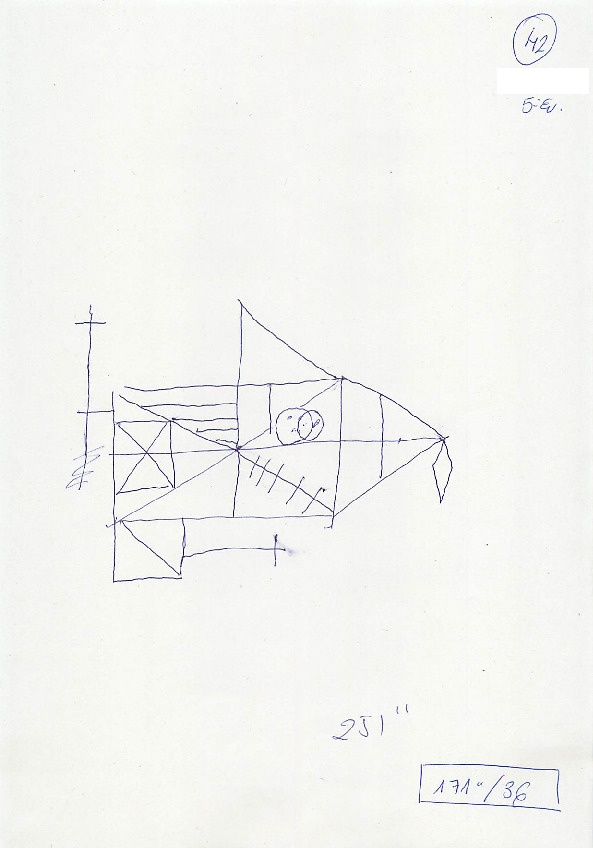 42
5-Ev.
251"
171"/36